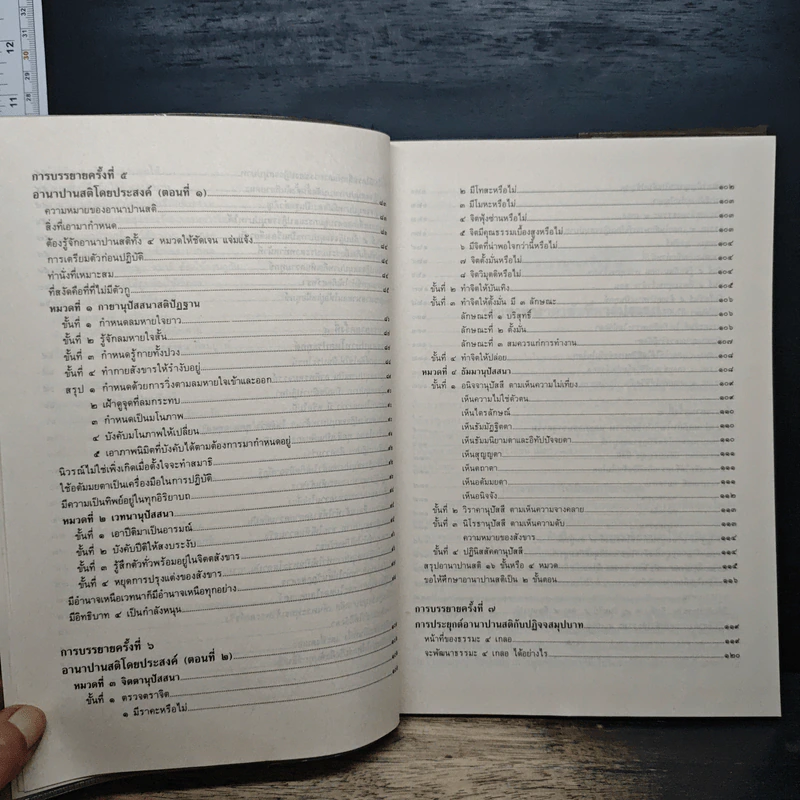 การบรรยายครั้งที่ ๕
อานาปานสติโดยประสงค์ (ตอนที่ ๑)
ความหมายของอานาปานสติ
สิ่งที่เอามากำหนด
ต้องรู้จักอานาปานสติทั้ง ๔ หมวดให้ชัดเจน แจ่มแจ้ง
การเตรียมตัวก่อนปฏิบัติ
ทำนั่งที่เหมาะสม
ที่สงัดคือที่ที่ไม่มีตัวกู
หมวดที่ ๑ กายานุปัสสนาสติปัฏฐาน
ขั้นที่ ๑ กำหนดลมหายใจยาว
ขั้นที่ ๒ รู้จักลมหายใจสั้น
ขั้นที่ ๓ กำหนดรู้กายทั้งปวง
ขั้นที่ ๔ ทำกายสังขารให้รำงับอยู่
สรุป ๑ กำหนดด้วยการวิ่งตามลมหายใจเข้าและออก
๒ เฝ้าดูจุดที่ลมกระทบ
๓ กำหนดเป็นมโนภาพ
๔ บังคับมโนภาพให้เปลี่ยน
๕ เอาภาพนิมิตที่บังคับได้ตามต้องการมากำหนดอยู่
นิวรณ์ไม่ใช่เพิ่งเกิดเมื่อตั้งใจจะทำสมาธิ
ใช้อตัมมยตาเป็นเครื่องมือในการปฏิบัติ
มีความเป็นทิพย์อยู่ในทุกอิริยาบถ
หมวดที่ ๒ เวทนานุปัสสนา
ขั้นที่ ๑ เอาปีติมาเป็นอารมณ์
ขั้นที่ ๒ บังคับปีติให้สงบระงับ
ขั้นที่ ๓ รู้สึกตัวทั่วพร้อมอยู่ในจิตตสังขาร
ขั้นที่ ๔ หยุดการปรุงแต่งของสังขาร
มีอำนาจเหนือเวทนาก็มีอำนาจเหนือทุกอย่าง
มีอิทธิบาท ๔ เป็นกำลังหนุน
การบรรยายครั้งที่ ๖
อานาปานสติโดยประสงค์ (ตอนที่ ๒)
หมวดที่ ๓ จิตตานุปัสสนา
ขั้นที่ ๑ ตรวจตราจิต
๑ มีราคะหรือไม่
๒ มีโทสะหรือไม่ ๑๐๒
๓ มีโมหะหรือไม่ ๑๐๓
๔ จิตฟุ้งซ่านหรือไม่ ๑๐๓
๕ จิตมีคุณธรรมเบื้องสูงหรือไม่ ๑๐๓
๖ มีจิตที่น่าพอใจกว่านี้หรือไม่ ๑๐๔
๗ จิตตั้งมั่นหรือไม่ ๑๐๔
๘ จิตวิมุตติหรือไม่ ๑๐๔
ขั้นที่ ๒ ทำจิตให้บันเทิง ๑๐๕
ขั้นที่ ๓ ทำจิตให้ตั้งมั่น มี ๓ ลักษณะ ๑๐๖
ลักษณะที่ ๑ บริสุทธิ์ ๑๐๖
ลักษณะที่ ๒ ตั้งมั่น ๑๐๖
ลักษณะที่ ๓ สมควรแก่การทำงาน ๑๐๗
ขั้นที่ ๔ ทำจิตให้ปล่อย ๑๐๘
หมวดที่ ๔ ธัมมานุปัสสนา ๑๐๘
ขั้นที่ ๑ อนิจจานุปัสสี ตามเห็นความไม่เที่ยง ๑๐๙
เห็นความไม่ใช่ตัวตน ๑๐๙
เห็นไตรลักษณ์ ๑๑๐
เห็นธัมมัฏฐิตตา ๑๑๐
เห็นธัมมนิยามตาและอิทัปปัจจยตา ๑๑๐
เห็นสุญญตา ๑๑๑
เห็นตถาตา ๑๑๑
เห็นอตัมมยตา ๑๑๑
เห็นอนิจจัง ๑๑๒
ขั้นที่ ๒ วิราคานุปัสสี ตามเห็นความจางคลาย ๑๑๓
ขั้นที่ ๓ นิโรธานุปัสสี ตามเห็นความดับ ๑๑๓
ความหมายของสังขาร ๑๑๔
ขั้นที่ ๔ ปฏินิสสัคคานุปัสสี ๑๑๔
สรุปอานาปานสติ ๑๖ ขั้นหรือ ๔ หมวด ๑๑๕
ขอให้ศึกษาอานาปานสติเป็น ๒ ขั้นตอน ๑๑๖
การบรรยายครั้งที่ ๗
การประยุกต์อานาปานสติกับปฏิจจสมุปบาท ๑๑๙
หน้าที่ของธรรมะ ๔ เกลอ ๑๑๙
จะพัฒนาธรรมะ ๔ เกลอ ได้อย่างไร ๑๒๐